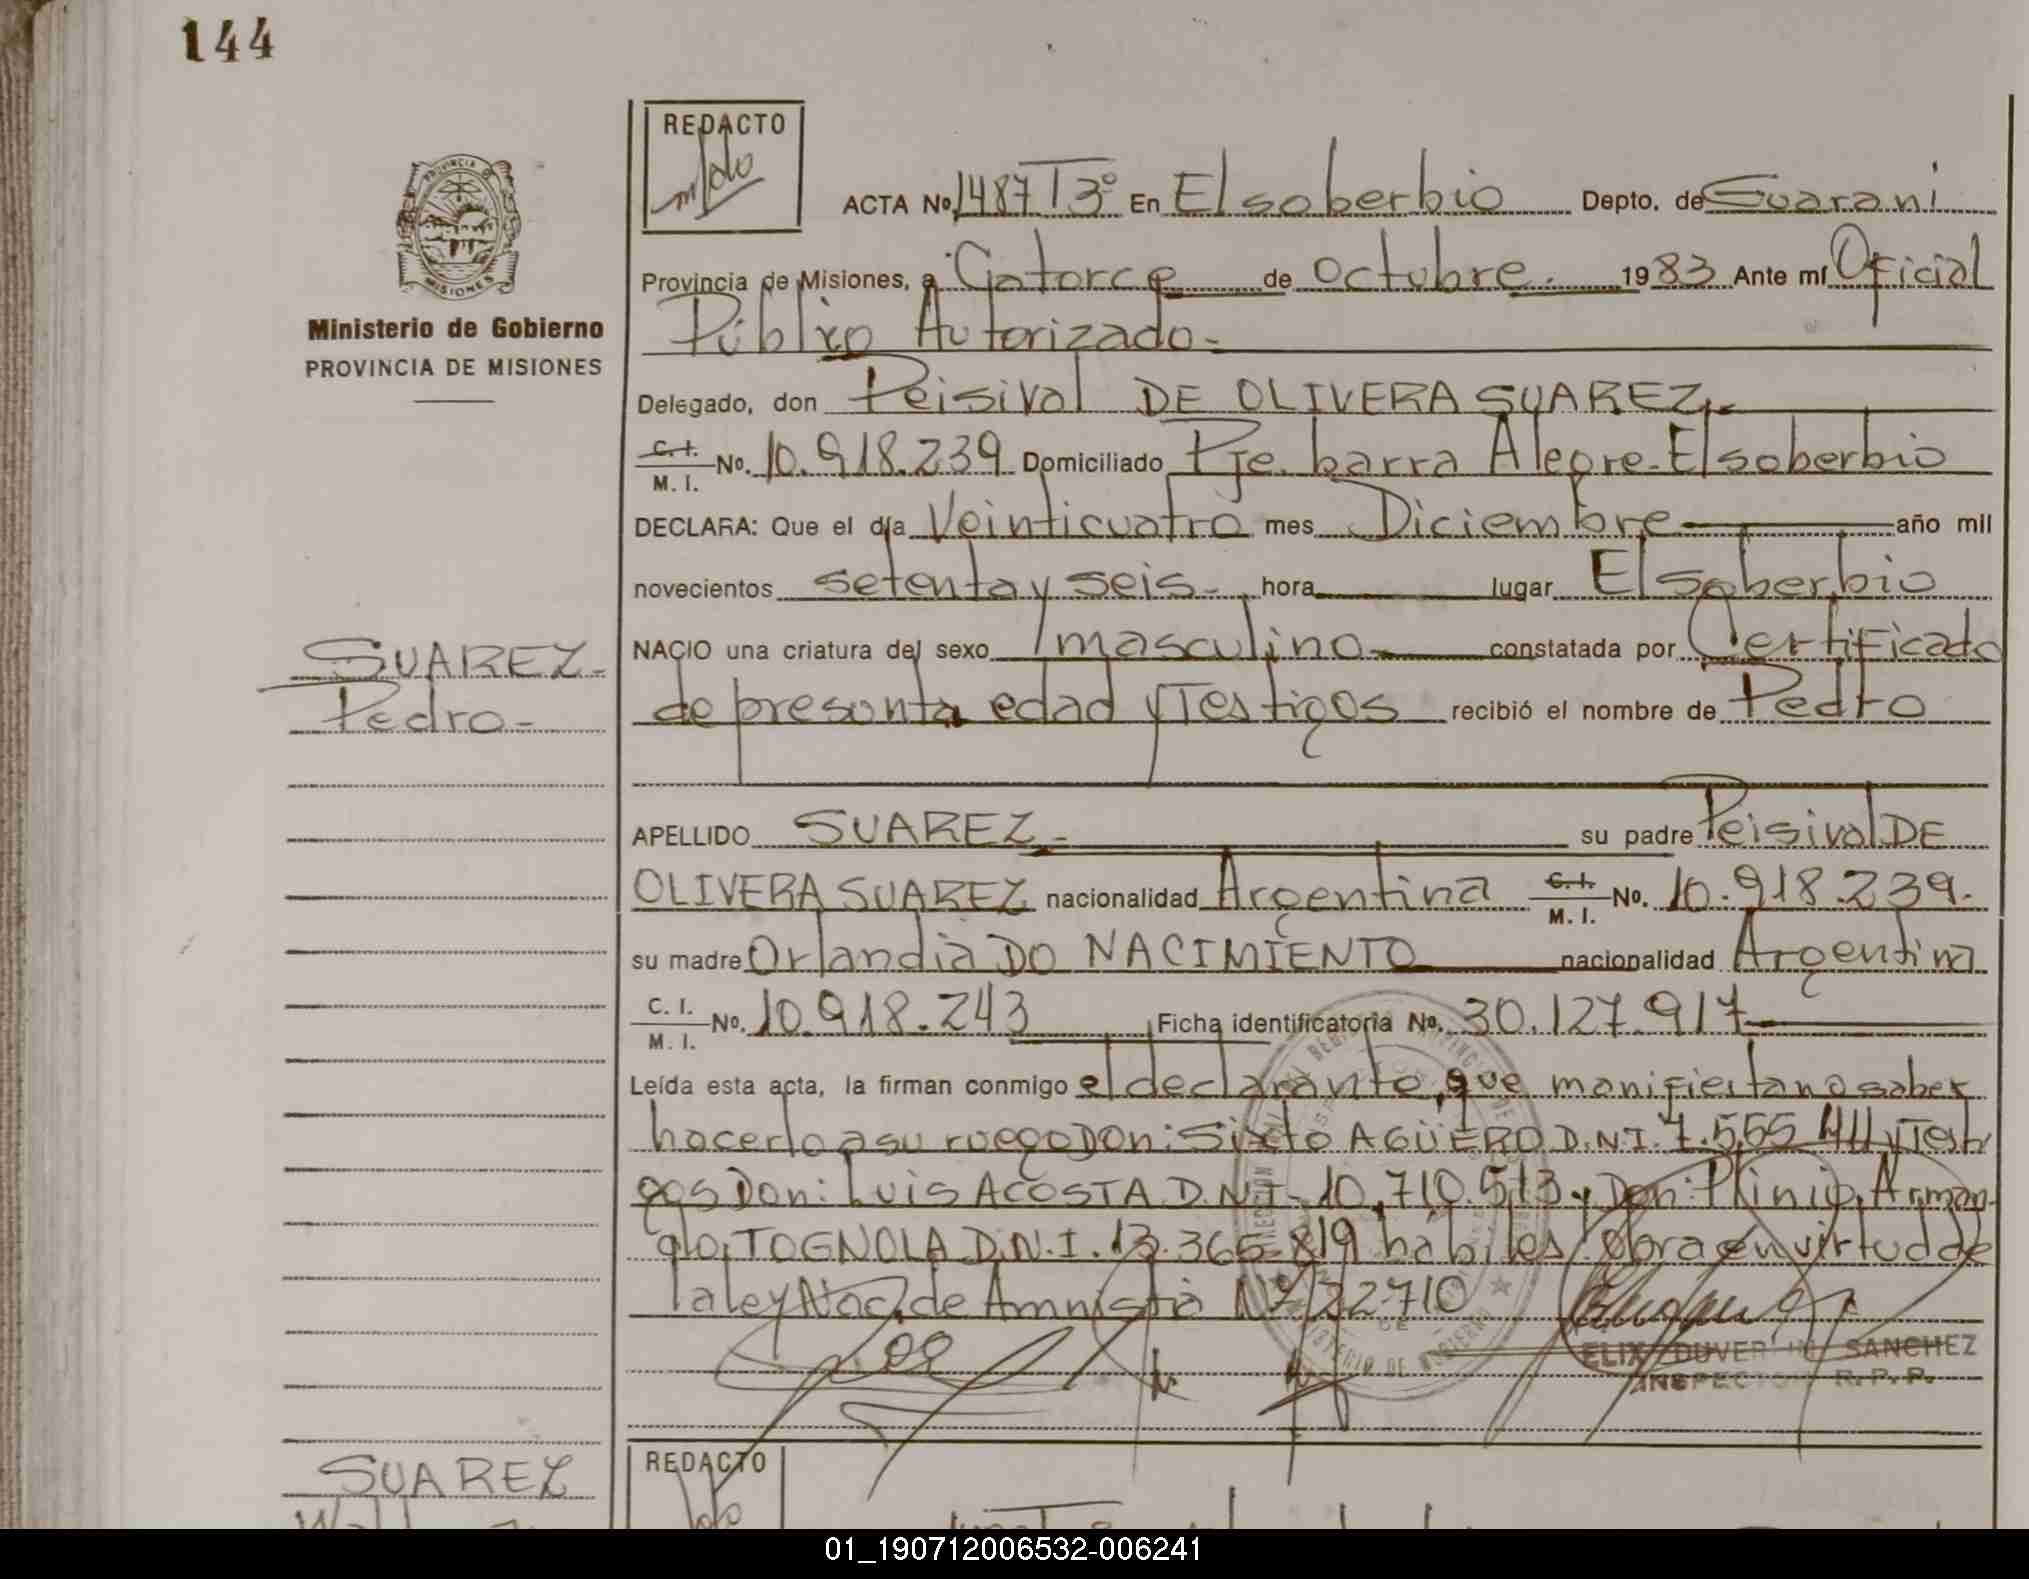 144
REDACTO
ACTA No. 1487 T 3º En El soberbio Depto. de Guarani
Provincia de Misiones, a Catorce de octubre. 1983 Ante mí Oficial
Público Autorizado.-
Ministerio de Gobierno
PROVINCIA DE MISIONES
Delegado, don Peisival DE OLIVERA SUAREZ.-
C.I. M. I. No. 10.918.239 Domiciliado Pje. barra Alegre-El soberbio
DECLARA: Que el día Veinticuatro mes Diciembre año mil
novecientos setenta y seis.- hora lugar El soberbio
SUAREZ.-
Pedro.-
NACIO una criatura del sexo masculino.- constatada por Certificado
de presunta edad y Testigos recibió el nombre de Pedro
APELLIDO SUAREZ.- su padre Peisival DE
OLIVERA SUAREZ nacionalidad Argentina C.I. M. I. No. 10.918.239.
su madre Orlandia DO NACIMIENTO nacionalidad Argentina
C. I. M. I. No. 10.918.243 Ficha identificatoria No. 30.127.917
Leída esta acta, la firman conmigo el declarante, que manifiesta no saber
hacerlo a su ruego Don: Sixto AGÜERO D.N.I. 7.555 y Testi
gos Don: Luis ACOSTA D.N.I- 10.710.513 y Don: Plinio Arman-
do, TOGNOLA D.N.I. 13.365.819 habiles, Obra en virtud de
la ley Nac. de Amnistia Nº 22710
ELIX DUVER SANCHEZ
INSPECTOR R. P. P.
SUAREZ
REDACTO
01_190712006532-006241